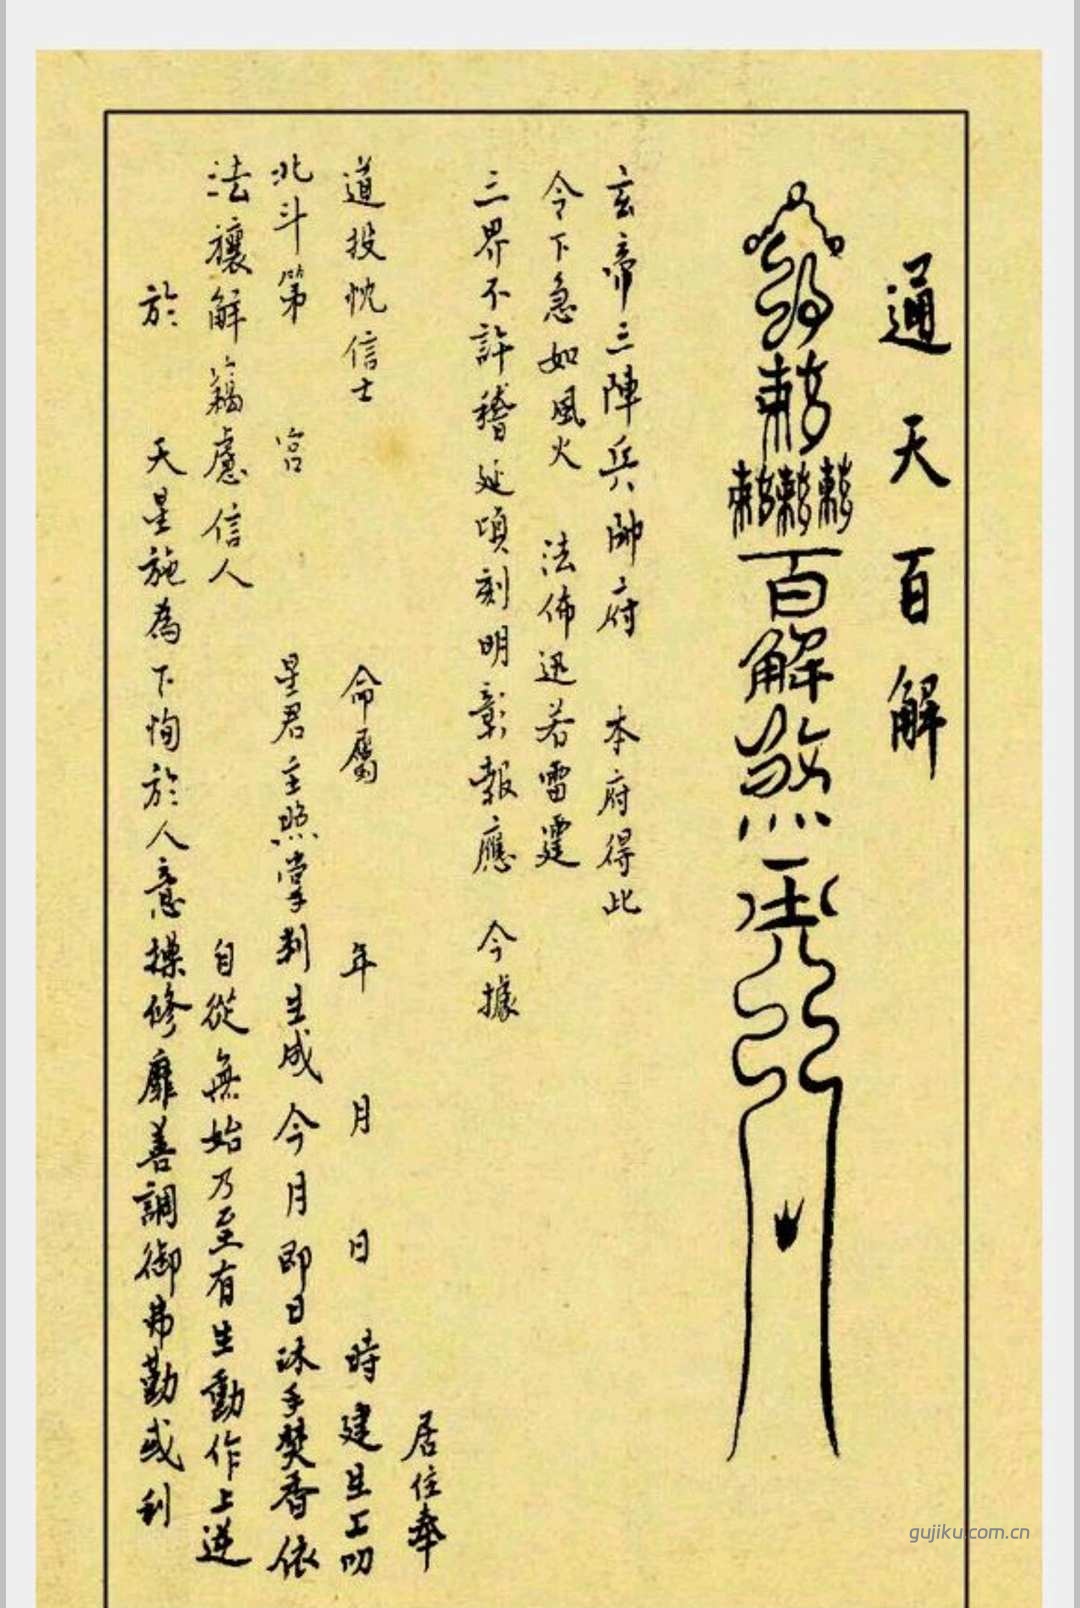 通天百解
百解煞
玄帝三陣兵帥府 本府得此
令下急如風火 法佈迅若雷霆
三界不許稽延頃刻明彰報應 今據
居住奉
道投忱信士 命屬 年 月 日 時建生工叨
北斗第 宮 星君主照掌判生成今月即日沐手焚香依
法禳解竊慮信人 自從無始乃至有生動作上逆
於 天星施為下恂於人意操修靡善調御弗勤或利
gujiku.com.cn